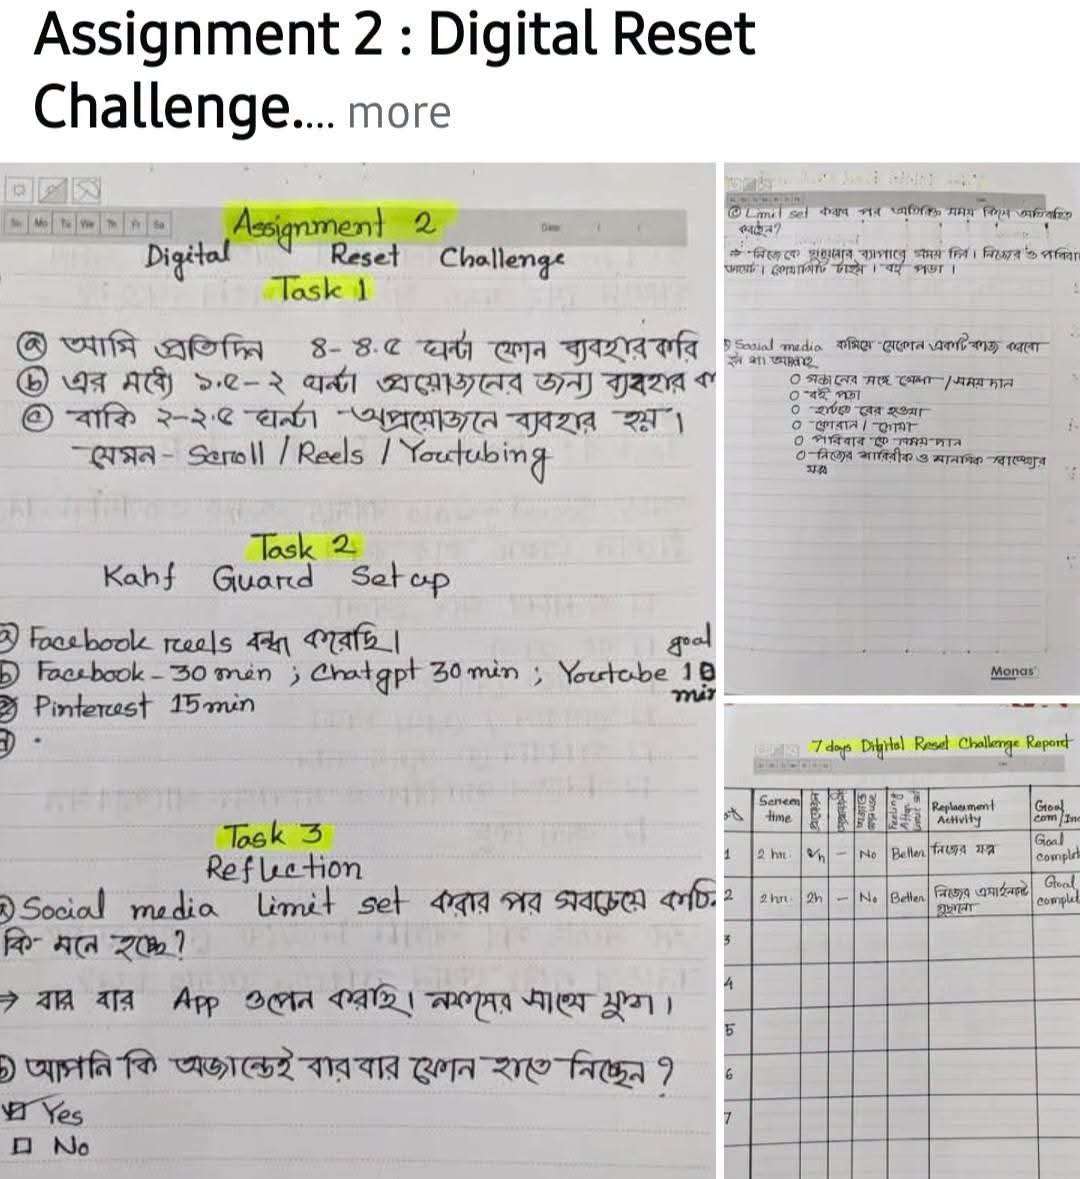 Assignment 2 : Digital Reset
Challenge.... more
Su Mo Tu We Th Fr Sa
Date
Assignment 2
Digital Reset Challenge
Task 1
ⓐ আমি প্রতিদিন ৪- ৪.৫ ঘন্টা ফোন ব্যবহার করি
ⓑ এর মধ্যে ১.৫-২ ঘন্টা প্রয়োজনের জন্য ব্যবহার
ⓒ বাকি ২-২.৫ ঘন্টা অপ্রয়োজনে ব্যবহার হয়।
যেমন- Scroll / Reels / Youtubing
Task 2
Kahf Guard Set up
ⓐ Facebook reels বন্ধ করেছি।
goal
ⓑ Facebook - 30 min ; Chatgpt 30 min ; Youtube 10 min
Pinterest 15 min
Task 3
Reflection
ⓐ Social media limit set করার পর সবচেয়ে কঠিন
কি মনে হচ্ছে?
→ বার বার App ওপেন করছি। নফসের সাথে যুদ্ধ।
ⓑ আপনি কি অজান্তেই বার বার ফোন হাতে নিচ্ছেন ?
☑ Yes
☐ No
Limit set করার পর অতিরিক্ত সময় কিসে অতিবাহিত
করছেন?
⇒ নিজেকে গুছানোর ব্যাপারে সময় দিন। নিজের ও পরিবা
বই পড়া।
Social media কমিয়ে যেকোন একটি কাজ করবো
○ সকালের সঙ্গে খেলা / সময় দান
○ বই পড়া
○ হাঁটতে বের হওয়া
○ কোরান / শোনা
○ পরিবার কে সময় দান
○ নিজের শারিরীক ও মানসিক স্বাস্থ্যের
যত্ন
Monas
7 days Digital Reset Challenge Report
Screen time Replacement Activity Goal com/Inc
1 2 hr 2h - No Better নিজের যত্ন Goal complet
2 2 hr 2h - No Better নিজের এসাইনমেন্ট গুছানো Goal complet
3
4
5
6
7